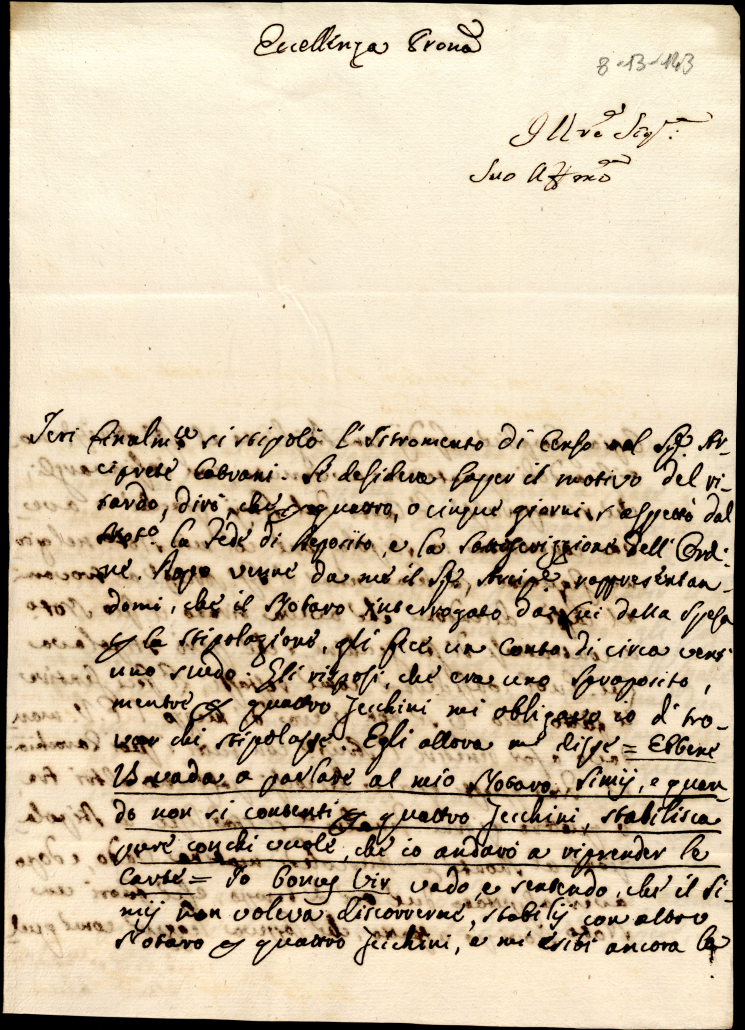 Eccellenza Prona
8-13-143
Ill.re Sigr:
Suo Affmo
Ieri finalmte si stipolò l'Istromento di Censo col Sigr. Ar-
ciprete Cabrani. Se desidera saper il motivo del ri-
tardo, dirò, che quattro, o cinque giorni s'aspettò dal
la Fede di deposito, e la sottoscrizzione dell'Ordi-
ne. Dopo venne da me il Sigr. Arcipr. rappresentan-
domi, che il Notaro interrogato da lui della spesa
p la stipolazione, gli fece un conto di circa vent
uno scudo. Gli risposi, che era uno sproposito,
mentre p quattro Zecchini mi obligavo io di tro-
var chi stipolasse. Egli allora mi disse = Ebbene
vada a parlare al mio Notaro Simij, e quan
do non si contenti p quattro Zecchini, stabilisca
pure con chi vuole, che io andarò a riprender le
Carte = Io bonus vir vado e sentendo, che il Si-
mij non voleva discorrerne, stabilij con altro
Notaro p quattro Zecchini, e mi esibì ancora la